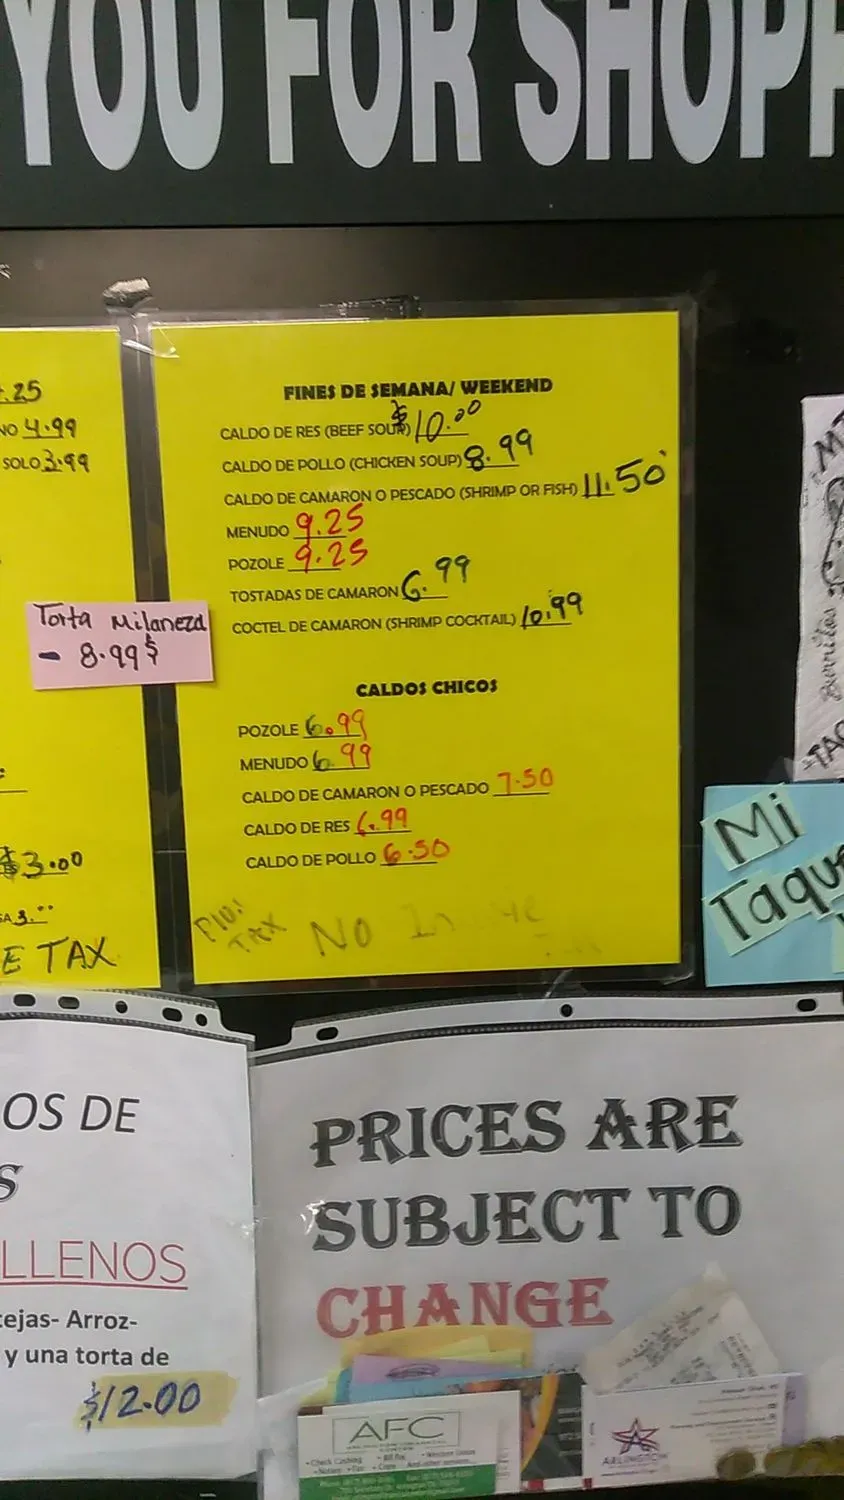 YOU FOR SHOPP
.25
NO 4.99
SOLO 3.99
$3.00
SA 3.00
E TAX
Torta Milaneza
- 8.99$
FINES DE SEMANA/ WEEKEND
CALDO DE RES (BEEF SOUP) $10.00
CALDO DE POLLO (CHICKEN SOUP) 8.99
CALDO DE CAMARON O PESCADO (SHRIMP OR FISH) 11.50
MENUDO 9.25
POZOLE 9.25
TOSTADAS DE CAMARON 6.99
COCTEL DE CAMARON (SHRIMP COCKTAIL) 10.99
CALDOS CHICOS
POZOLE 6.99
MENUDO 6.99
CALDO DE CAMARON O PESCADO 7.50
CALDO DE RES 6.99
CALDO DE POLLO 6.50
TAX NO
Burritos
Mi
Taque
OS DE
S
LLENOS
ejas- Arroz-
y una torta de
$12.00
PRICES ARE
SUBJECT TO
CHANGE
AFC
• Check Cashing • Bill Pay • Western Union
• Notary • Fax • Copy And other services...
ARLINGTON